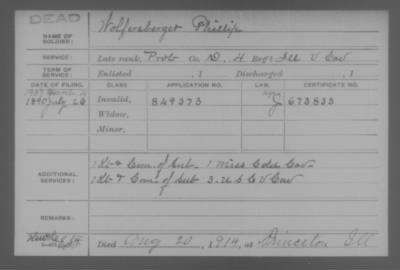 DEAD
NAME OF SOLDIER:
Wolfersberger Phillip
SERVICE:
Late rank, Prob Co. D, 4 Reg't Ill V Cav
TERM OF SERVICE:
Enlisted , 1 Discharged , 1
DATE OF FILING. CLASS APPLICATION NO. LAW. CERTIFICATE NO.
1890 July 26 Invalid, 849373 J 673833
Widow,
Minor,
ADDITIONAL SERVICES:
1 Lt & Com. of Sub. 1 Miss Cold Cav
1 Lt & Com. of Sub 3. U S C V Cav
REMARKS:
Died Aug 20, 1914, at Princeton Ill